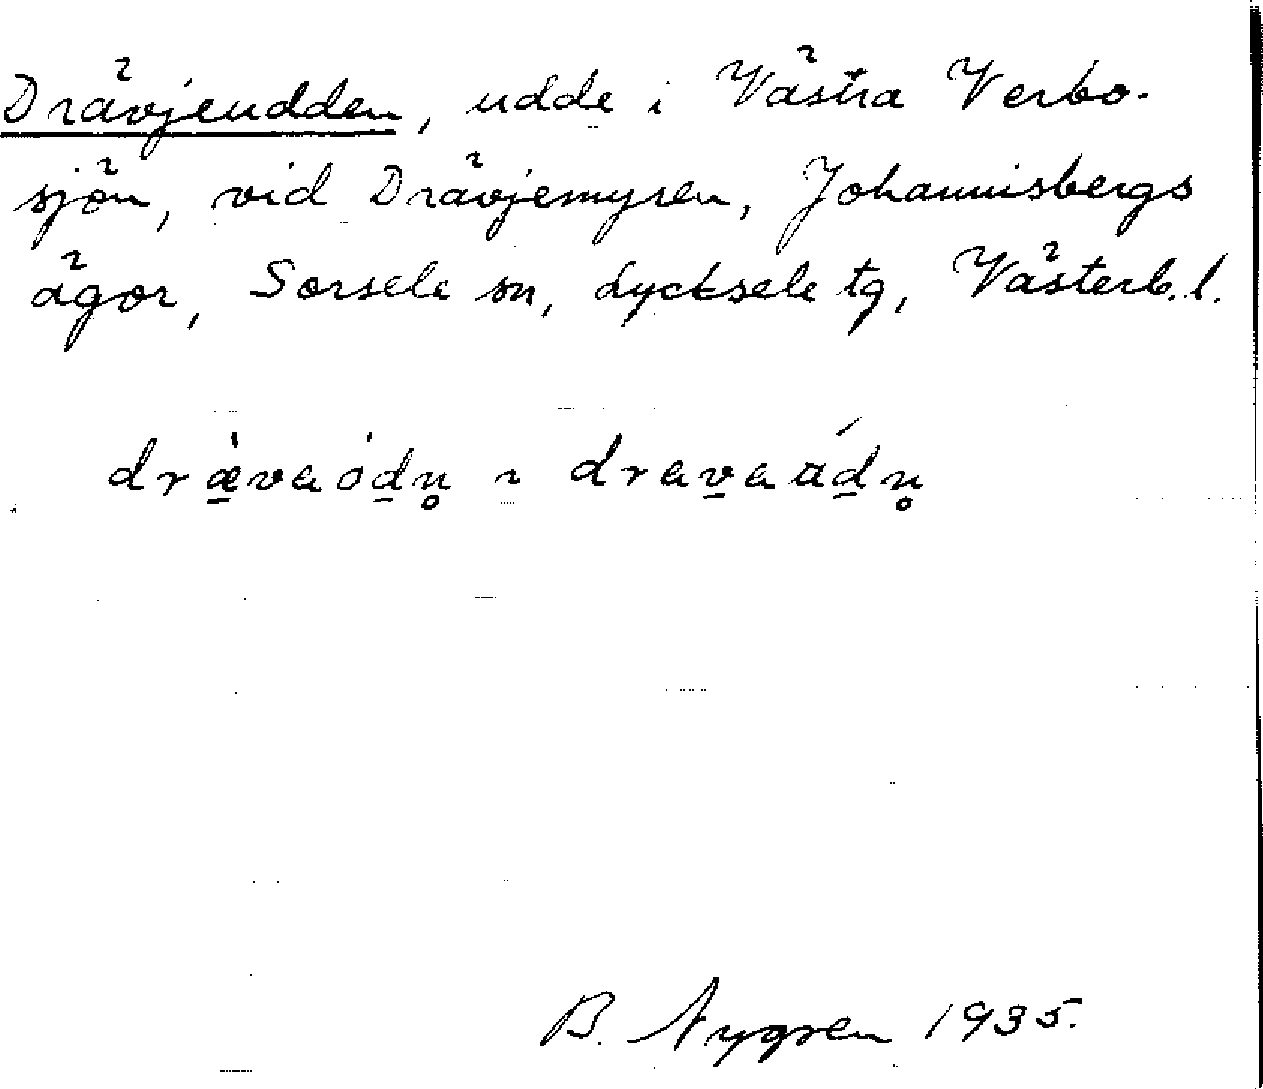 Drävjeudden, udde i Västra Verbo-
sjön, vid Drävjemyren, Johannisbergs
ägor, Sorsele sn, Lycksele tg, Västerb.l.
dræ̀vaódn̥ ~ dravaádn̥
B. Nygren 1935.